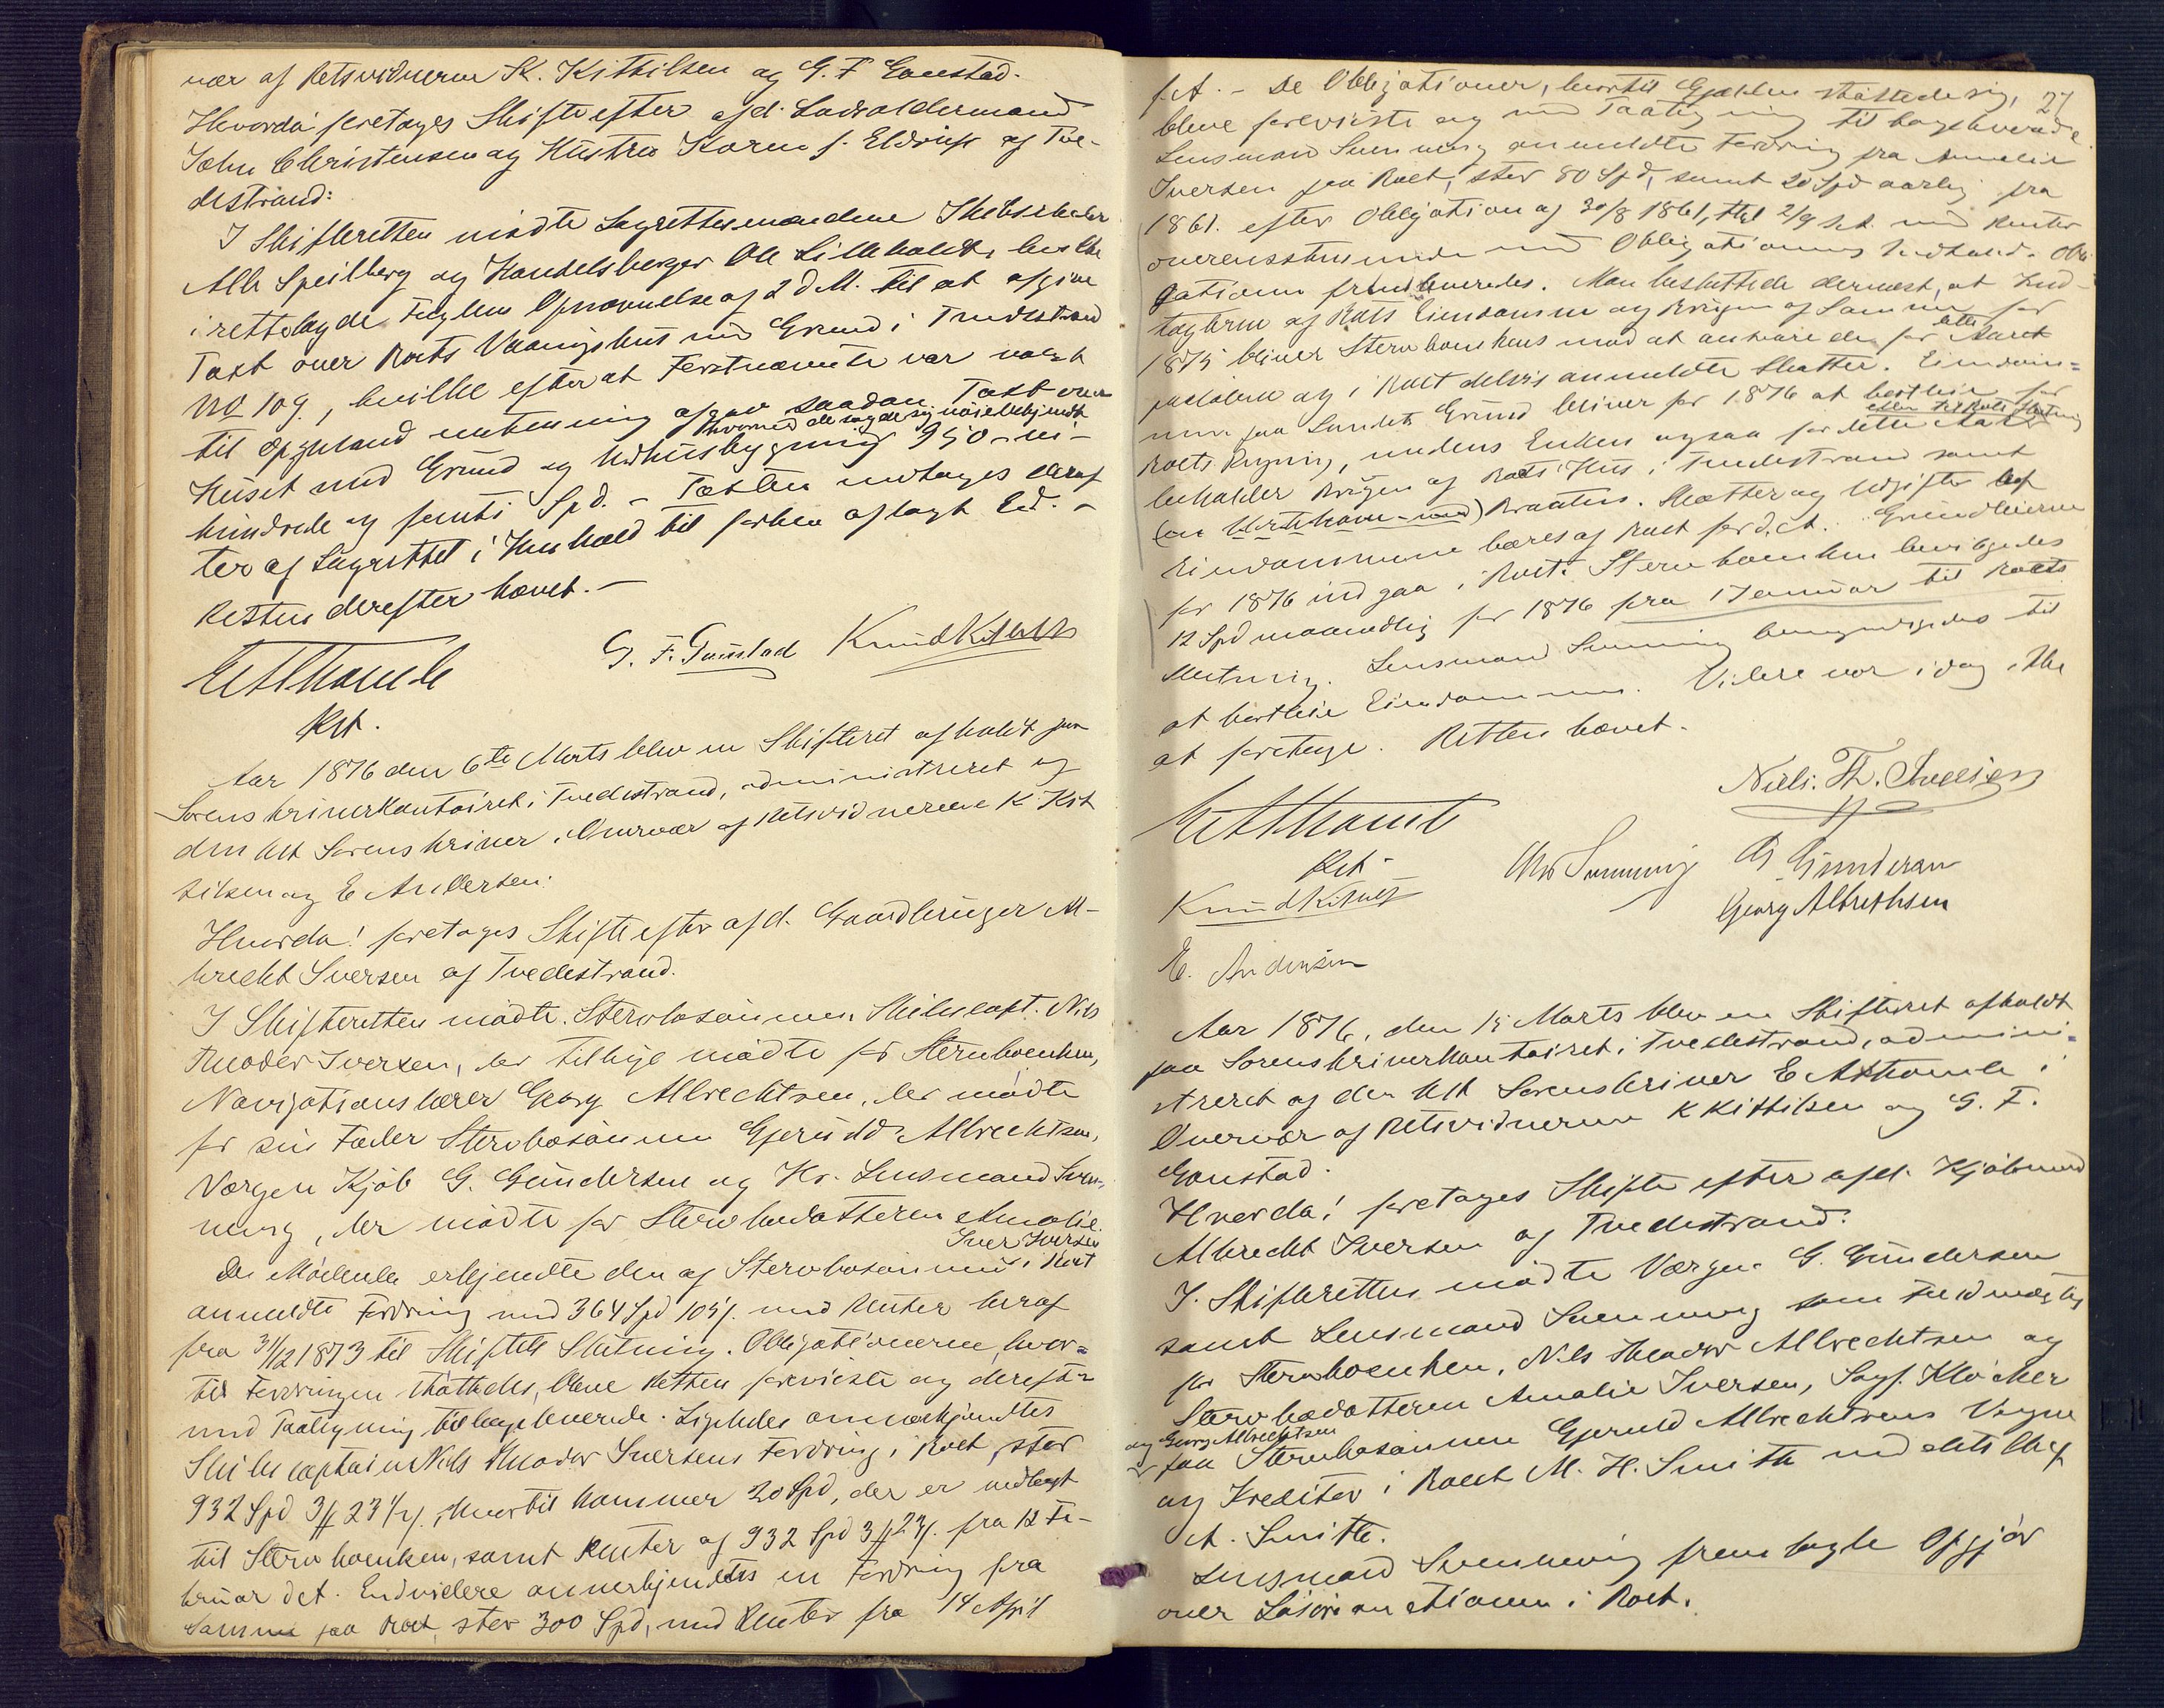 vær af Retsvidnerne K. Kittilsen og G. F. Gonstad.
Hvorda foretages Skifte efter afd. Lodsoldermand
John Christensen og Hustru Karen f. Eldrup af Tve-
destrand:
I Skifteretten mødte Lagrettesmændene Skibsreder
Alb Speilberg og Handelsborger Ole Lilleholdt, hvilke
i retteslagde Fogdens Opnævnelse af 2 d.M. til at afgive
Taxt over Boets Vaaningshus med Grund i Tvedestrand
No 109, hvilke efterat Førstnævnte var valgt
til Opmand enstemmig afgav saadan Taxt over
hvormed de sagde sig nøie bekjendt
Huset med Grund og Udhusbygning 950 – ni-
hundrede og femti Spd. – Taxten modtages deref-
ter af Lagrettet i Henhold til forhen aflagt Ed. –
Retten derefter hævet. –
G. F. Gonstad Knud Kittilsen
Kst.
Aar 1876 den 6te Marts blev en Skifteret afholdt paa
Sorenskriverkontoiret i Tvedestrand, administreret af
den kst Sorenskriver i Overvær af Retsvidnerne K Kit
tilsen og E Andersen:
Hvorda! foretages Skifte efter afd. Gaardbruger Al-
brecht Iversen af Tvedestrand.
I Skifteretten mødte Stervbosønnen Skibscapt. Nils
Theodor Iversen, der tillige mødte for Stervboenken,
Navigationslærer Georg Albrechtsen, der mødte
for sin Fader Stervbosønnen Gjeruld Albrechtsen,
Værgen Kjøb G. Gundersen og Hr. Lensmand Sven-
ning, der mødte for Stervbodatteren Amalie.
Iver Iversen
De Mødende erkjendte den af Stervbosønnen i Boet
anmeldte Fordring med 364 Spd 105 ſ. med Renter heraf
fra 31/12 1873 til Skiftets Slutning. Obligationerne, hvor-
til Fordringen støttedes, bleve Retten foreviste og derefter
med Paategning tilbageleverede. Ligeledes anerkjendtes
Skibscaptain Nils Theodor Iversens Fordring i Boet, stor
932 Spd 3 23 ſ., hvortil kommer 20 Spd, der er udlagt
til Stervboenken, samt Renter af 932 Spd 3 23 ſ. fra 12 Fe-
bruar d.A. Endvidere anerkjendtes en Fordring fra
Samme paa Boet, stor 300 Spd, med Renter fra 14 April
27
f.A. – De Obligationer, hvortil Gjælden støttede sig,
bleve foreviste og med Paategning tilbageleverede.
Lensmand Svenning anmeldte Fordring fra Amalie
Iversen paa Boet, stor 80 Spd, samt 20 Spd aarlig fra
1861. efter Obligation af 30/8 1861, tgl. 2/9 s.A. med Renter
overensstemmende med Obligationens Indhold. Obli
gationen fremleveredes. Man besluttede dernæst, at Ind-
tægterne af Boets Eiendomme og Brugen af Samme for
1875 bliver Stervboenkens mod at ansvare de for dette Aaret
paaløbne og i Boet delvis anmeldte Skatter. Eiendom-
men paa Landets Grund bliver for 1876 at bortleie for
eller til Boets Slutning
Boets Regning, medens Enken ogsaa for dette Aar
beholder Brugen af Boets Hus i Tvedestrand samt
Braaten. Skatter og Udgifter af
Eiendommene bæres af Boet for d.A. Grundleierne
for 1876 indgaa i Boet. Stervboenken bevilgedes
12 Spd maanedlig for 1876 fra 1 Januar til Boets
Slutning. Lensmand Svenning bemyndigedes til
at bortleie Eiendommen. Videre var i dag ikke
at foretage. Retten hævet.
Niels. Th. Iversen
Kst.
Svenning G Gundersen
Knud Kittilsen Georg Albrethsen
E. Andersen
Aar 1876, den 15 Marts blev en Skifteret afholdt
paa Sorenskriverkontoiret i Tvedestrand, admini-
streret af den kst Sorenskriver i
Overvær af Retsvidnerne K Kittilsen og G. F.
Gonstad.
Hvorda! foretages Skifte efter afd. Kjøbmand
Albrecht Iversen af Tvedestrand:
I Skifteretten mødte Værgen G. Gundersen
samt Lensmand Svenning som Fuldmægtig
for Stervboenken, Nils Theodor Albrechtsen og
Stervbodatteren Amalie Iversen, Sagf. Kløcker
og Georg Albrechtsen
for Stervbosønnen Gjeruld Albrechtsens Vegne
og Kreditor i Boet M. H. Smith ved
A. Smith.
Lensmand Svenning fremlagde Opgjør
over Løsøreauctionen i Boet.